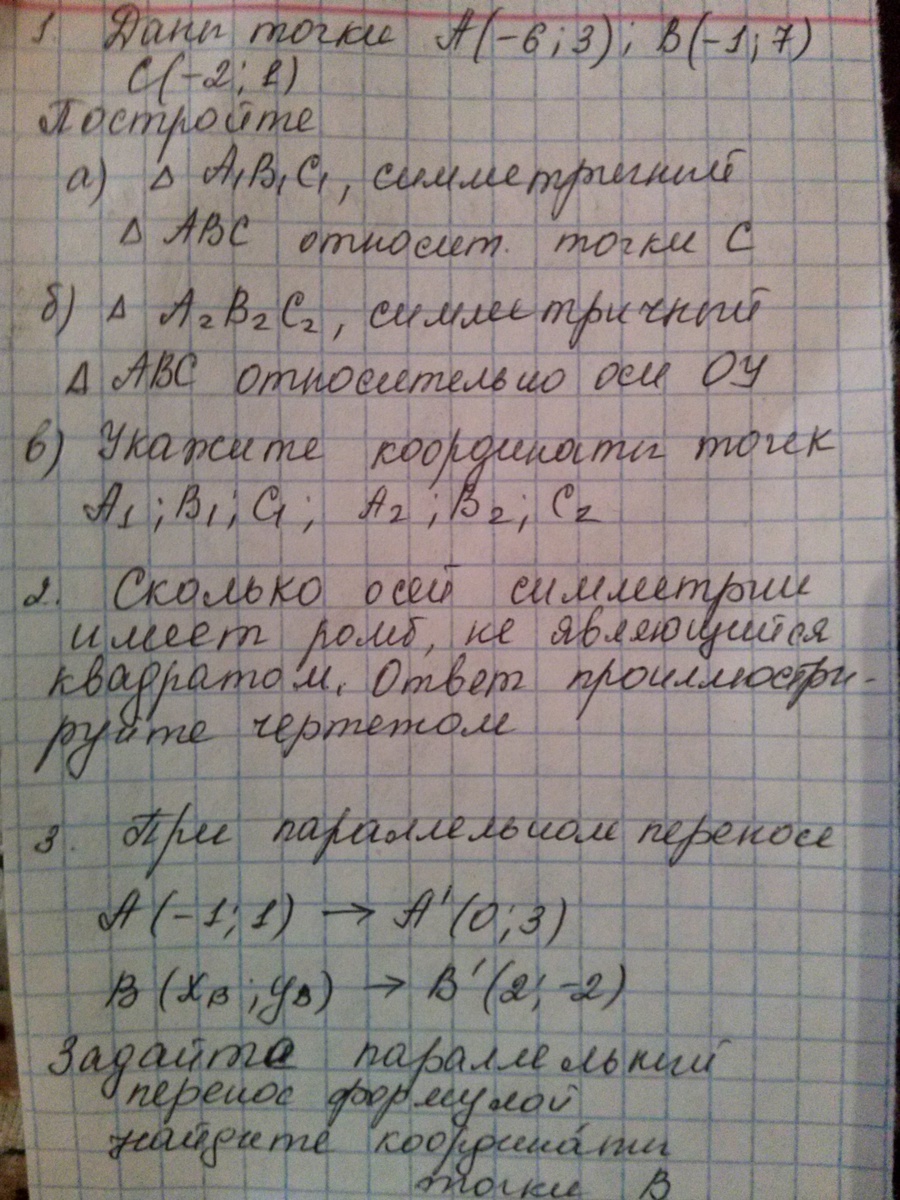 1. Даны точки A(-6;3); B(-1;7)
C(-2;1)
Постройте
а) Δ A₁B₁C₁, симметричный
Δ ABC относит. точки C
б) Δ A₂B₂C₂, симметричный
Δ ABC относительно оси ОУ
в) Укажите координаты точек
A₁; B₁; C₁; A₂; B₂; C₂
2. Сколько осей симметрии
имеет ромб, не являющийся
квадратом. Ответ проиллюстри-
руйте чертетом
3. При параллельном переносе
A(-1;1) → A'(0;3)
B(x_B; y_B) → B'(2;-2)
Задайте параллельный
перенос формулой
найдите координаты
точки B